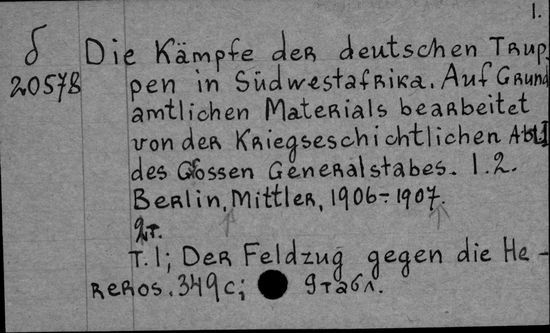 1.
б Die Kämpfe der deutschen Trup-
20578 pen in Südwestafrika. Auf Grund
amtlichen Materials bearbeitet
von der Kriegsgeschichtlichen Abt. I
des Grossen Generalstabes. 1.2.
Berlin, Mittler, 1906-1907.
2т.
T.1; Der Feldzug gegen die He-
reros. 349 c; 9 табл.